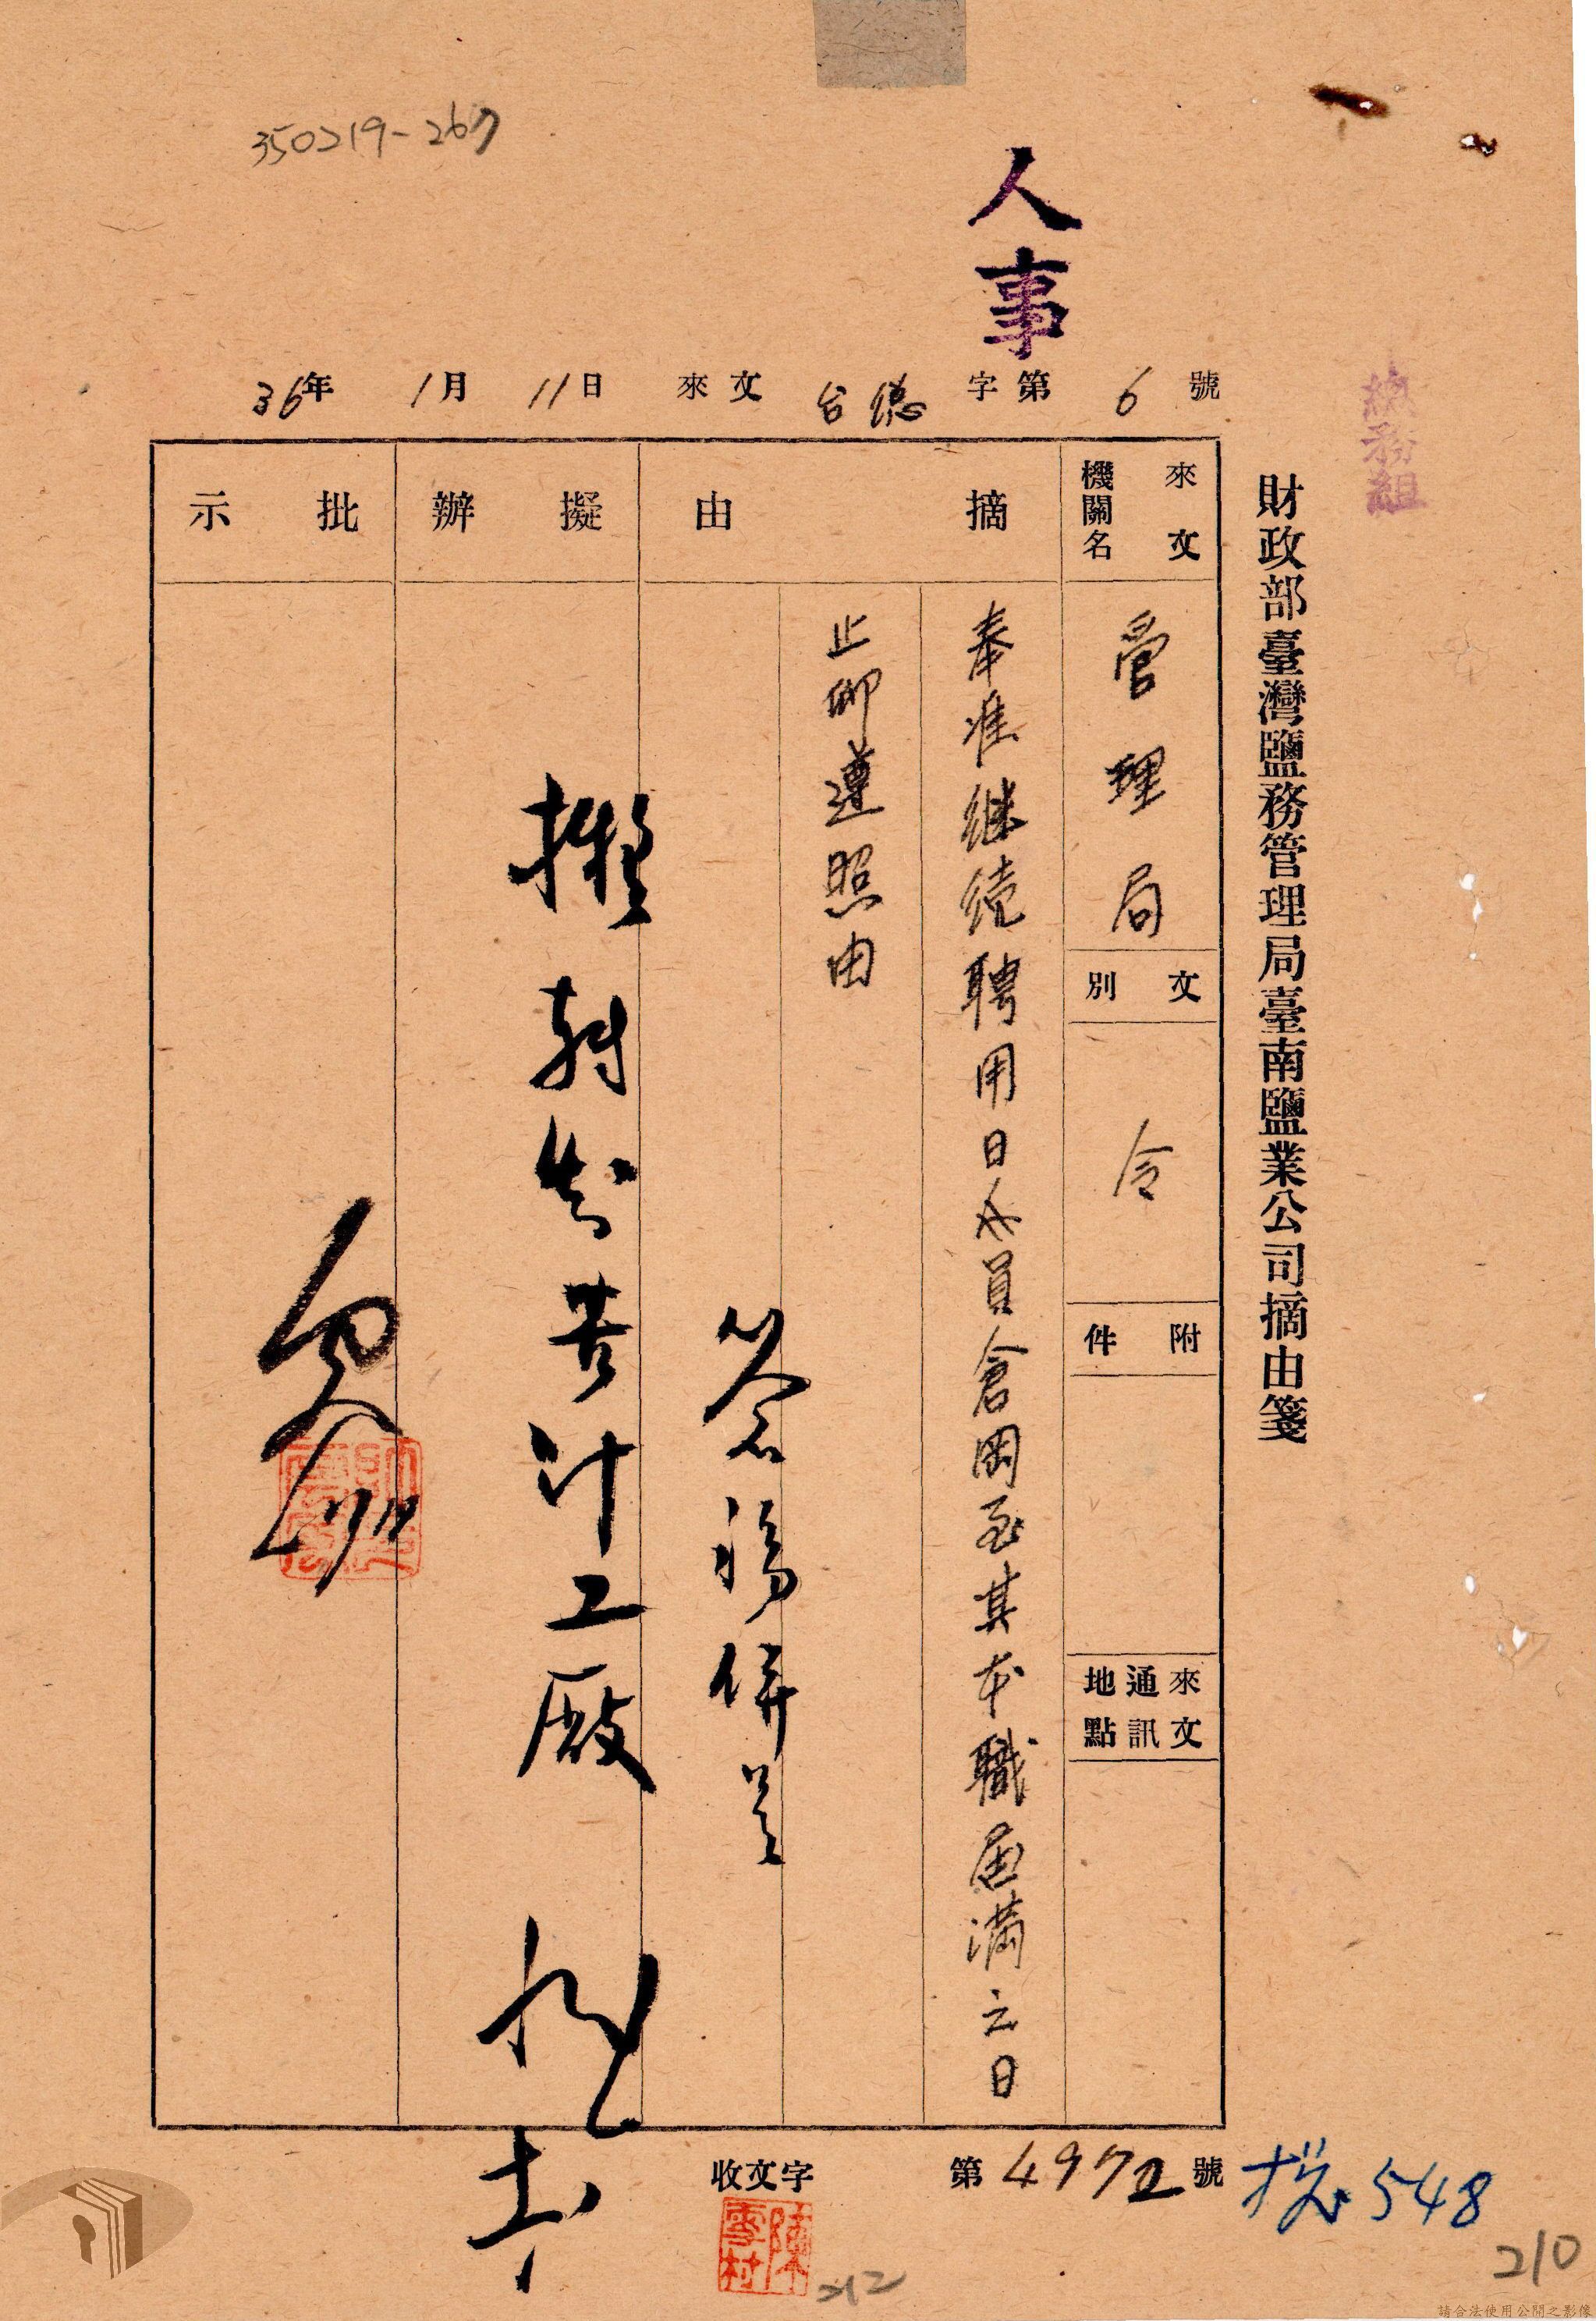 350219-267
人事
總務組
財政部臺灣鹽務管理局臺南鹽業公司摘由箋
36年 1月 11日 來文 台總 字第 6 號
來文機關名
管理局
文別
令
附件
來文通訊地點
摘由
奉准继续聘用日人員倉岡至其本職屆滿之日
止仰遵照由
擬辦
擬轉知苦汁工廠
批示
收文字 第 4972 號
陳雲村
212
548
210
請合法使用公開之影像